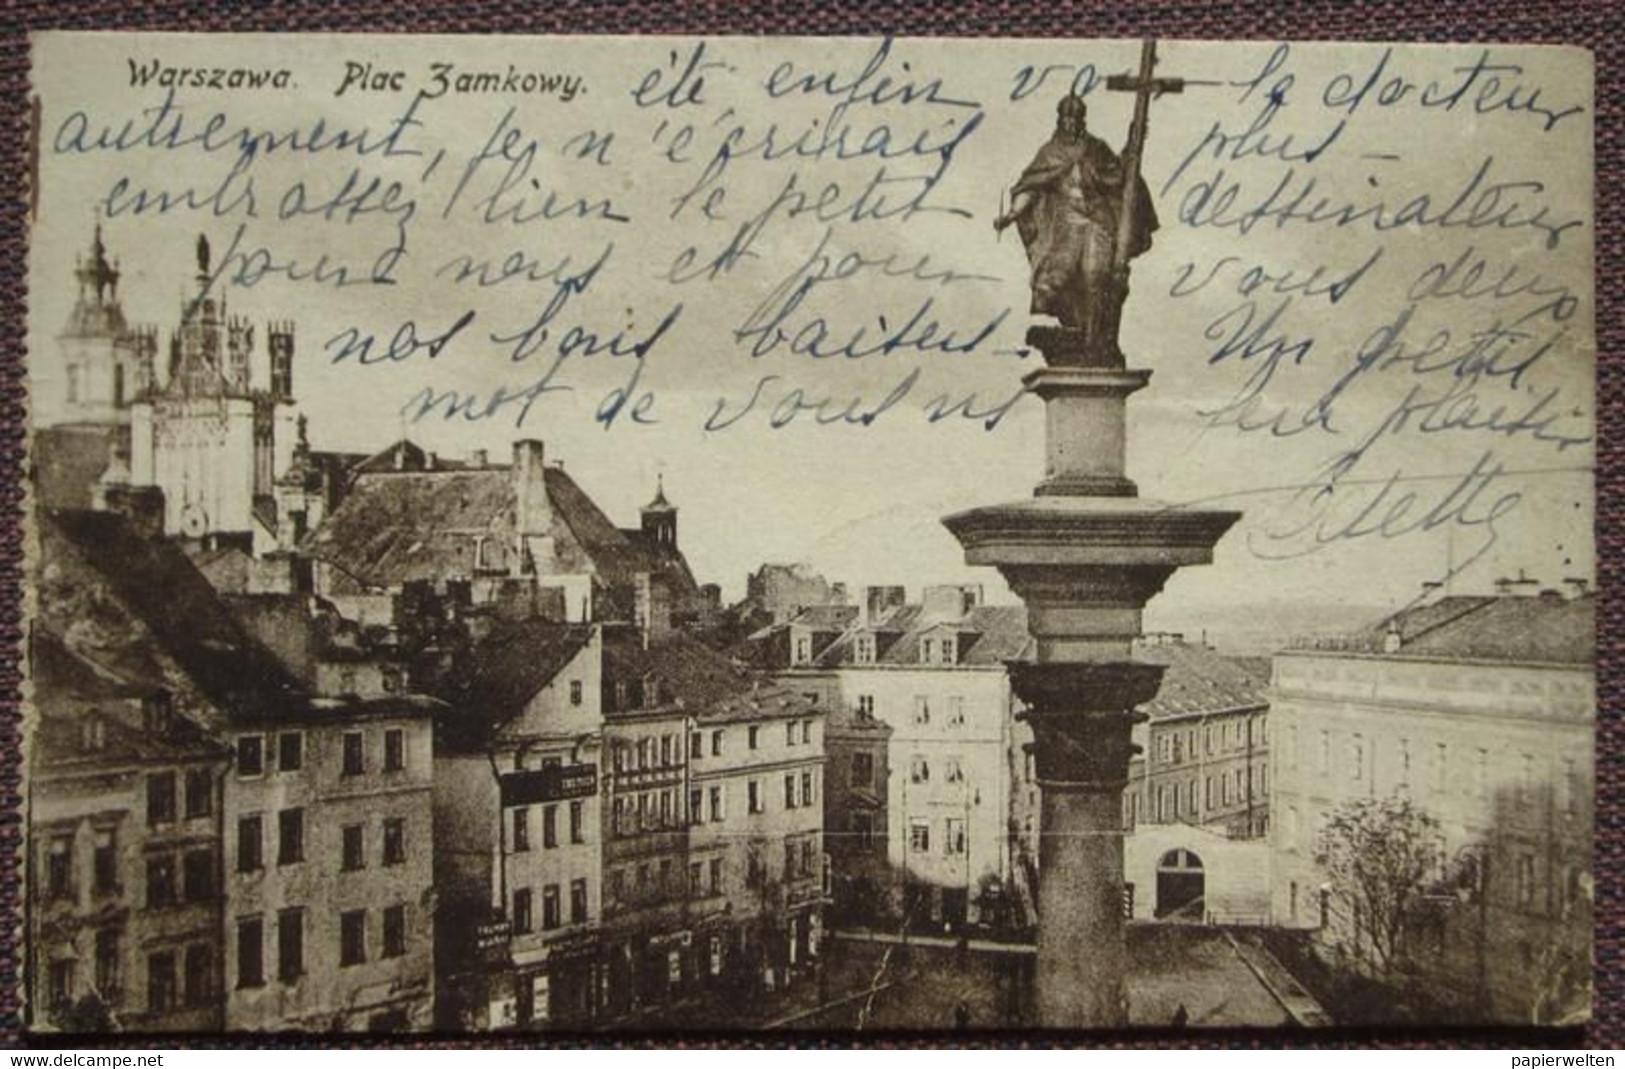 Warszawa. Plac Zamkowy.
été enfin voir le docteur
autrement, je n'écrirais plus –
embrassez bien le petit dessinateur
pour nous et pour vous deux
nos bons baisers – Un petit
mot de vous ns fera plaisir
delcampe.net
papierwelten